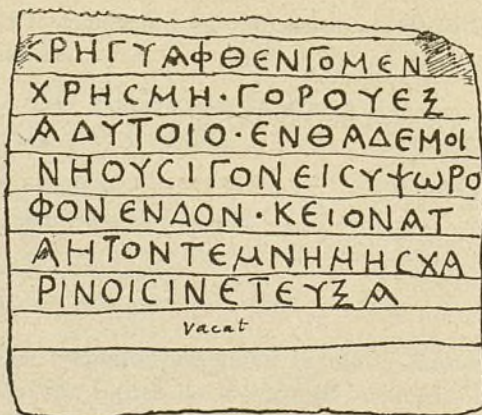 ΚΡΗΓΥΑΦΘΕΝΓΟΜΕΝ
ΧΡΗϹΜΗ·ΓΟΡΟΥΕΞ
ΑΔΥΤΟΙΟ·ΕΝΘΑΔΕΜΟΙ
ΝΗΟΥϹΙΓΟΝΕΙϹΥΨΩΡΟ
ΦΟΝΕΝΔΟΝ·ΚΕΙΟΝΑΤ
ΑΗΤΟΝΤΕΜΝΗΜΗϹΧΑ
ΡΙΝΟΙϹΙΝΕΤΕΥΞΑ
vacat